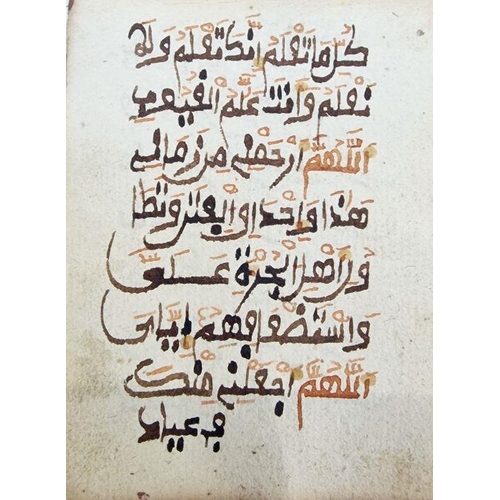 كل ما تعلم انك تعلم ولا
نعلم وانت علم الغيوب
اللهم ارحمني من زماني
هذا واحداق الفتن وتطا
ول اهل الجرة علي
واستضعافهم اياي
اللهم اجعلني منك
في عياذ